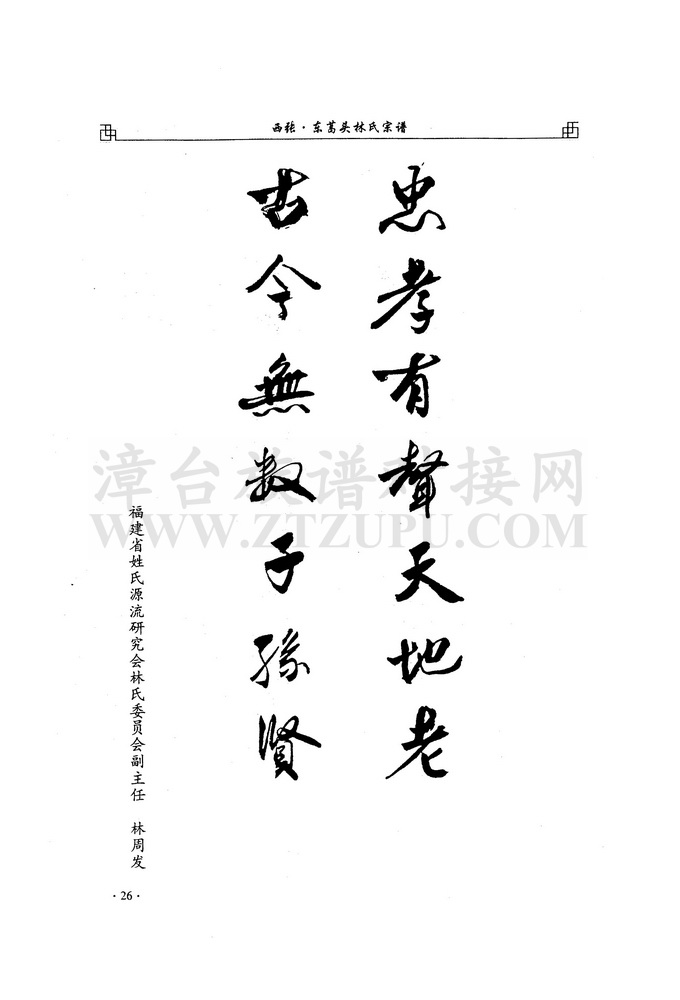 西张·东葛头林氏宗谱
忠孝有聲天地老
古今無数子孫賢
福建省姓氏源流研究会林氏委员会副主任 林周发
漳台族谱对接网
WWW.ZTZUPU.COM
·26·